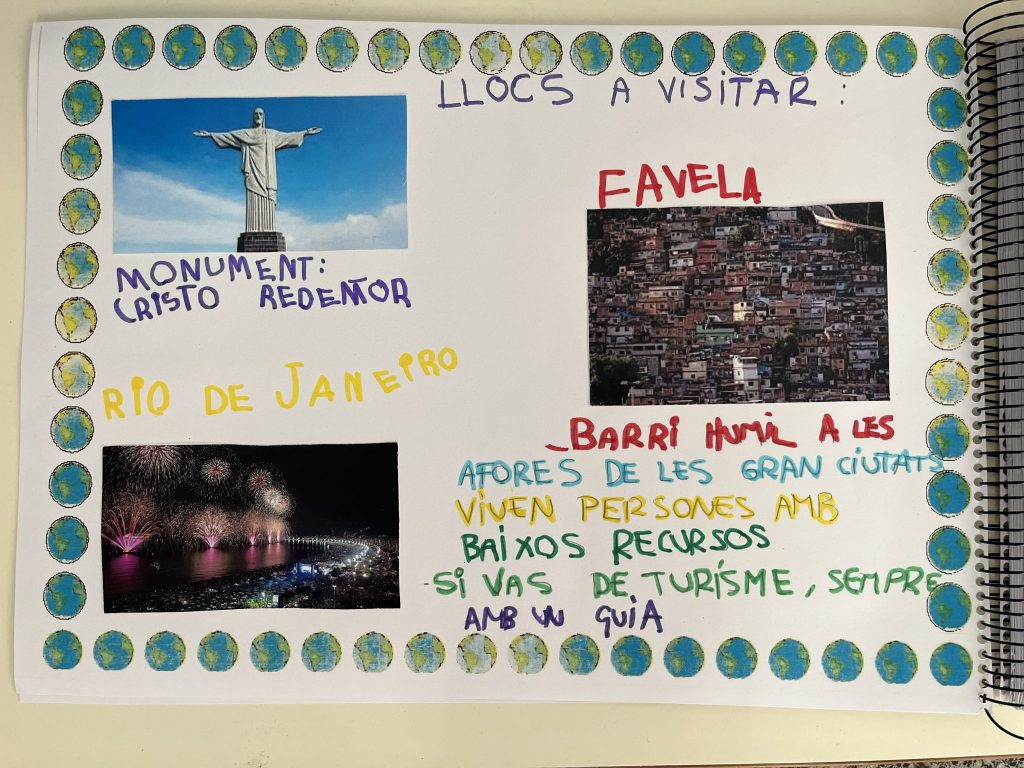 LLOCS A VISITAR:
MONUMENT:
CRISTO REDEMTOR
RIO DE JANEIRO
FAVELA
-BARRI HUMIL A LES
AFORES DE LES GRAN CIUTATS
VIVEN PERSONES AMB
BAIXOS RECURSOS
-SI VAS DE TURÍSME, SEMPRE
AMB UN GUIA